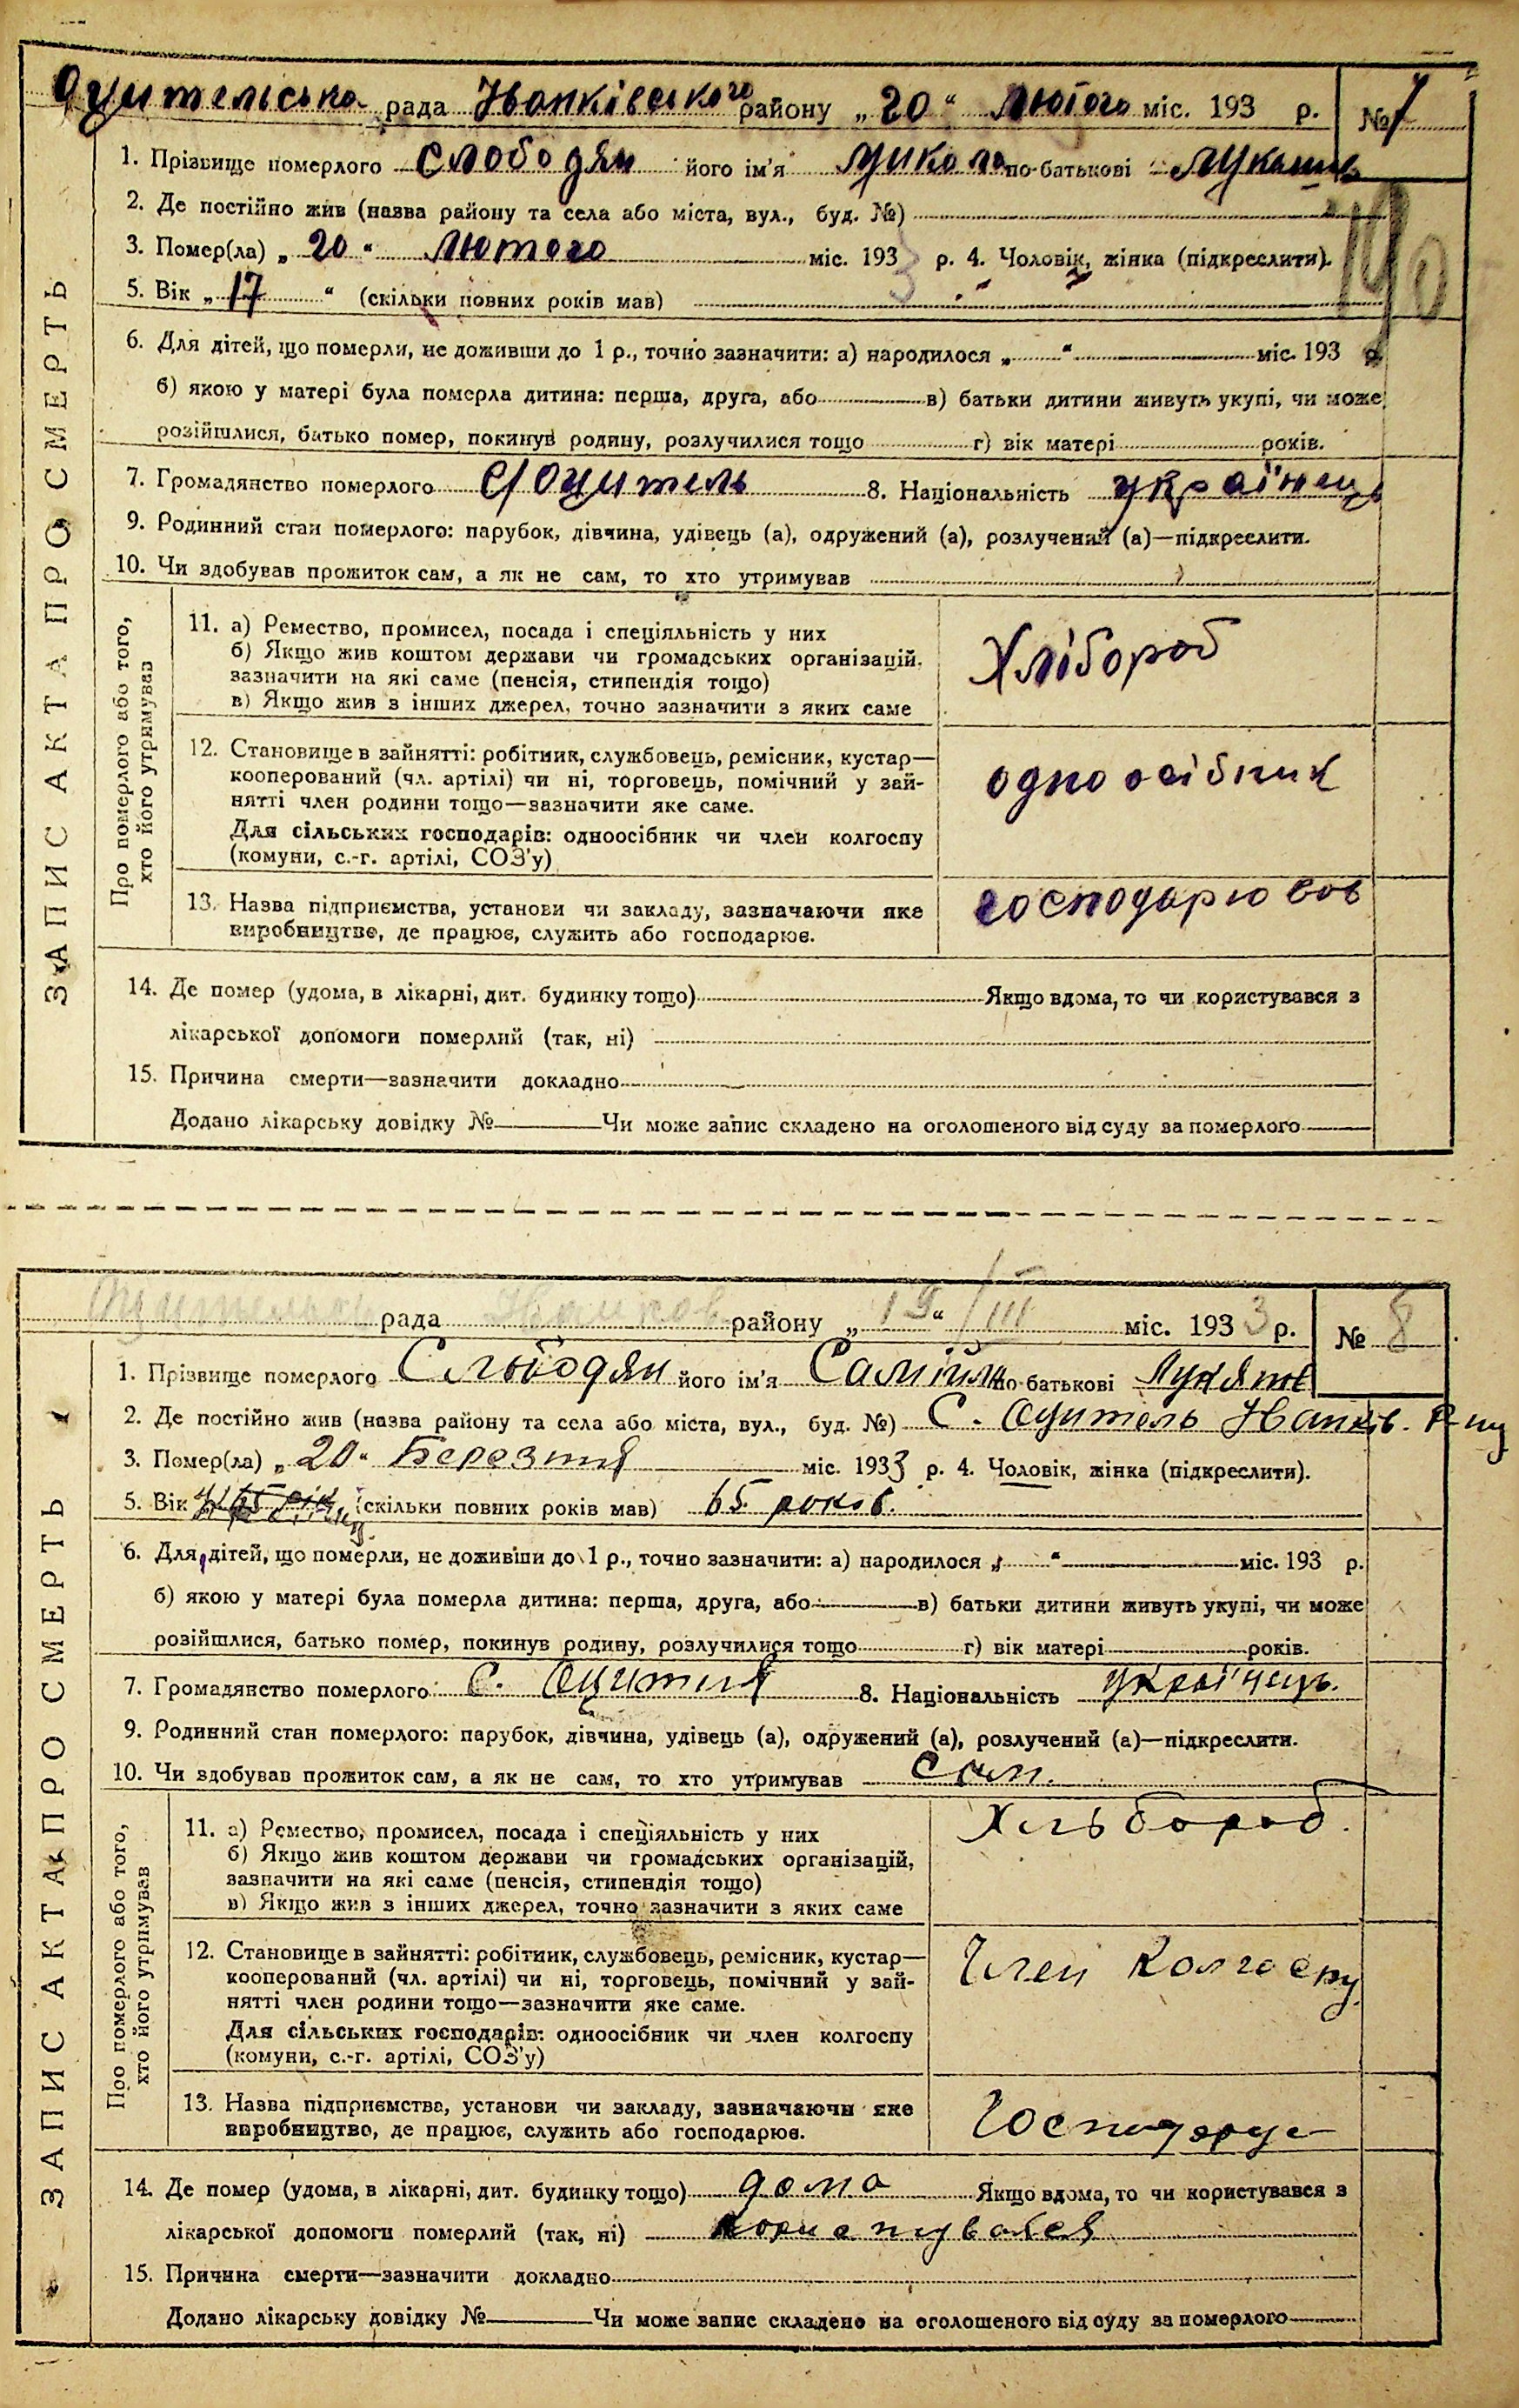 Оцительська рада Іванківського району „20" лютого міс. 193 р. № 7
1. Прізвище померлого Слободян його ім'я Микола по-батькові Лукашів
2. Де постійно жив (назва району та села або міста, вул., буд. №)
3. Помер(ла) „20" лютого міс. 1933 р. 4. Чоловік, жінка (підкреслити).
5. Вік „17" (скільки повних років мав)
6. Для дітей, що померли, не доживши до 1 р., точно зазначити: а) народилося „ " міс. 193 р.
б) якою у матері була померла дитина: перша, друга, або в) батьки дитини живуть укупі, чи може
розійшлися, батько помер, покинув родину, розлучилися тощо г) вік матері років.
7. Громадянство померлого с/Оцитель 8. Національність українець
9. Родинний стан померлого: парубок, дівчина, удівець (а), одружений (а), розлучений (а)—підкреслити.
10. Чи здобував прожиток сам, а як не сам, то хто утримував
ЗАПИС АКТА ПРО СМЕРТЬ
Про померлого або того,
хто його утримував
11. а) Ремество, промисел, посада і спеціяльність у них
б) Якщо жив коштом держави чи громадських організацій,
зазначити на які саме (пенсія, стипендія тощо)
в) Якщо жив з інших джерел, точно зазначити з яких саме
Хлібороб
12. Становище в зайнятті: робітник, службовець, ремісник, кустар—
кооперований (чл. артілі) чи ні, торговець, помічний у зай-
нятті член родини тощо—зазначити яке саме.
Для сільських господарів: одноосібник чи член колгоспу
(комуни, с.-г. артілі, СОЗ'у)
одноосібник
13. Назва підприємства, установи чи закладу, зазначаючи яке
виробництво, де працює, служить або господарює.
господарював
14. Де помер (удома, в лікарні, дит. будинку тощо) Якщо вдома, то чи користувався з
лікарської допомоги померлий (так, ні)
15. Причина смерти—зазначити докладно
Додано лікарську довідку № Чи може запис складено на оголошеного від суду за померлого
рада району „19" /III міс. 1933 р. № 8
1. Прізвище померлого Слободян його ім'я Самійло по-батькові
2. Де постійно жив (назва району та села або міста, вул., буд. №) С. Оцитель Іванків. Р-ну
3. Помер(ла) „20" Березня міс. 1933 р. 4. Чоловік, жінка (підкреслити).
5. Вік (скільки повних років мав) 65 років.
6. Для дітей, що померли, не доживши до 1 р., точно зазначити: а) народилося „ " міс. 193 р.
б) якою у матері була померла дитина: перша, друга, або в) батьки дитини живуть укупі, чи може
розійшлися, батько помер, покинув родину, розлучилися тощо г) вік матері років.
7. Громадянство померлого С. 8. Національність українець.
9. Родинний стан померлого: парубок, дівчина, удівець (а), одружений (а), розлучений (а)—підкреслити.
10. Чи здобував прожиток сам, а як не сам, то хто утримував сам.
ЗАПИС АКТА ПРО СМЕРТЬ
Про померлого або того,
хто його утримував
11. а) Ремество, промисел, посада і спеціяльність у них
б) Якщо жив коштом держави чи громадських організацій,
зазначити на які саме (пенсія, стипендія тощо)
в) Якщо жив з інших джерел, точно зазначити з яких саме
Хльбороб.
12. Становище в зайнятті: робітник, службовець, ремісник, кустар—
кооперований (чл. артілі) чи ні, торговець, помічний у зай-
нятті член родини тощо—зазначити яке саме.
Для сільських господарів: одноосібник чи член колгоспу
(комуни, с.-г. артілі, СОЗ'у)
Член колгоспу
13. Назва підприємства, установи чи закладу, зазначаючи яке
виробництво, де працює, служить або господарює.
Господарує
14. Де помер (удома, в лікарні, дит. будинку тощо) дома Якщо вдома, то чи користувався з
лікарської допомоги померлий (так, ні) користувався
15. Причина смерти—зазначити докладно
Додано лікарську довідку № Чи може запис складено на оголошеного від суду за померлого